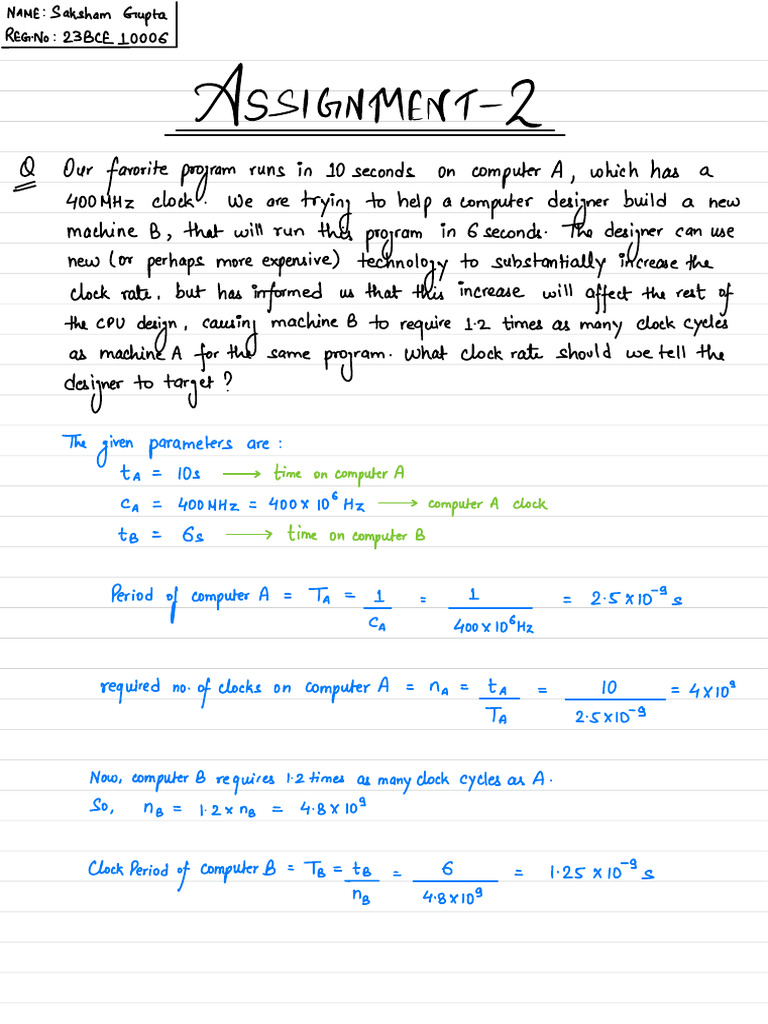 NAME: Saksham Gupta
REG.No: 23BCE 10006
ASSIGNMENT-2
Q Our favorite program runs in 10 seconds on computer A, which has a
400 MHz clock. We are trying to help a computer designer build a new
machine B, that will run this program in 6 seconds. The designer can use
new (or perhaps more expensive) technology to substantially increase the
clock rate, but has informed us that this increase will affect the rest of
the CPU design, causing machine B to require 1.2 times as many clock cycles
as machine A for the same program. What clock rate should we tell the
designer to target?
The given parameters are:
t_A = 10s ⟶ time on computer A
C_A = 400 MHz = 400 × 10⁶ Hz ⟶ computer A clock
t_B = 6s ⟶ time on computer B
Period of computer A = T_A = 1/C_A = 1/(400 × 10⁶ Hz) = 2.5 × 10⁻⁹ s
required no. of clocks on computer A = n_A = t_A/T_A = 10/(2.5 × 10⁻⁹) = 4 × 10⁹
Now, computer B requires 1.2 times as many clock cycles as A.
So, n_B = 1.2 × n_B = 4.8 × 10⁹
Clock Period of computer B = T_B = t_B/n_B = 6/(4.8 × 10⁹) = 1.25 × 10⁻⁹ s